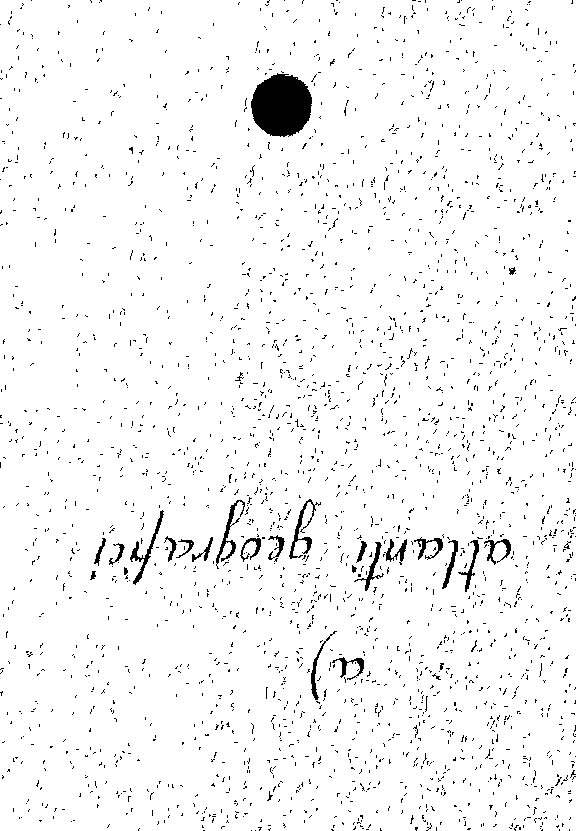 a)
atlanti geografici